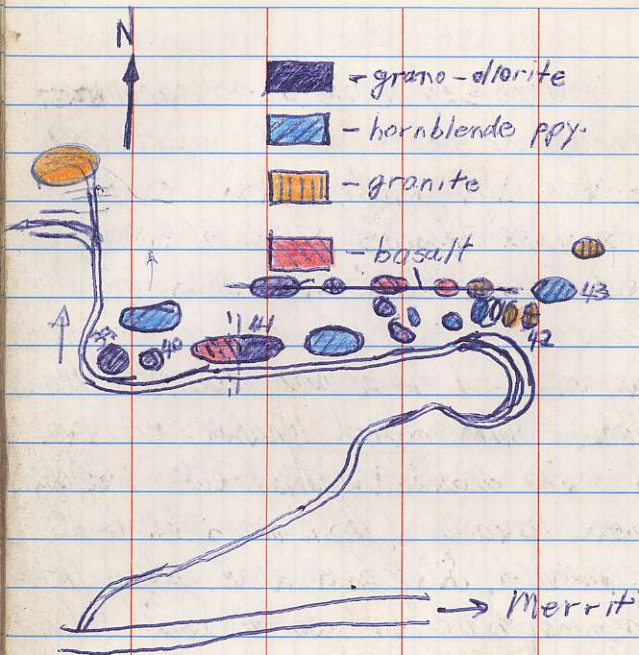 N
- grano-diorite
- hornblende ppy.
- granite
- basalt
43
41
40
42
→ Merrit